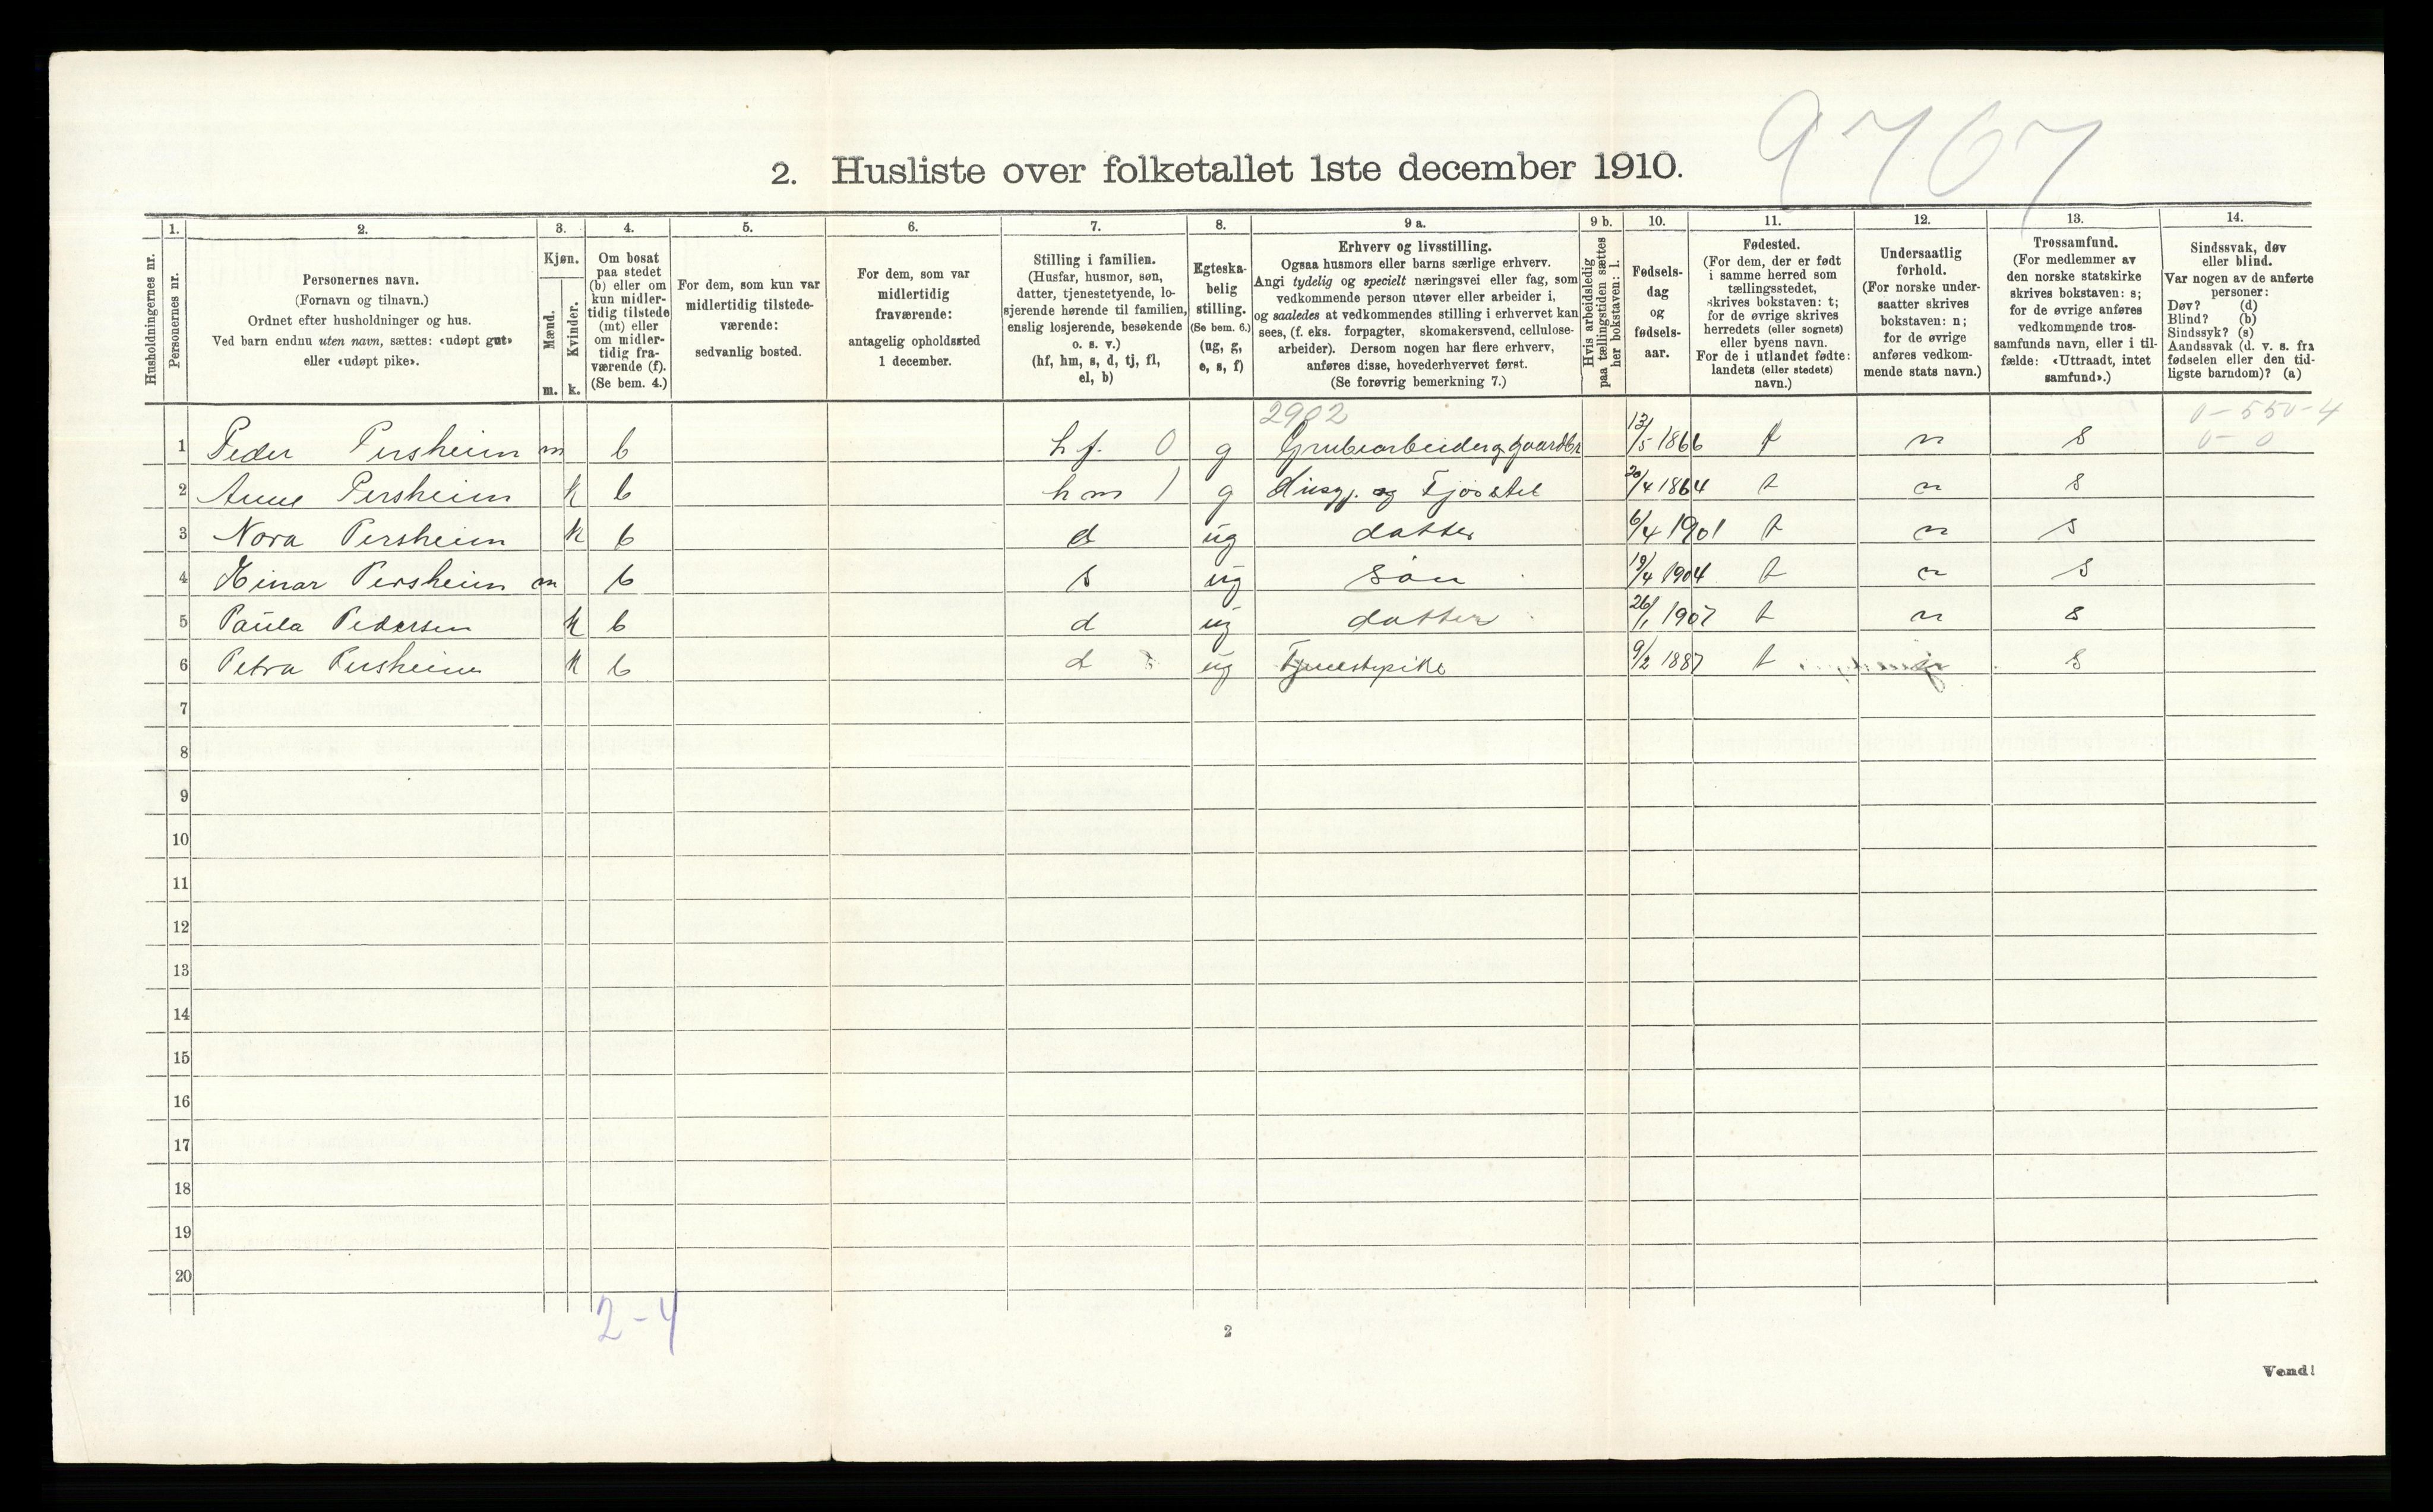 9767
2. Husliste over folketallet 1ste december 1910.
1. 2. 3. 4. 5. 6. 7. 8. 9 a. 9 b. 10. 11. 12. 13. 14.
Husholdningernes nr.
Personernes nr.
Personernes navn.
(Fornavn og tilnavn.)
Ordnet efter husholdninger og hus.
Ved barn endnu uten navn, sættes: «udøpt gut»
eller «udøpt pike».
Kjøn.
Mænd.
Kvinder.
m. k.
Om bosat
paa stedet
(b) eller om
kun midler-
tidig tilstede
(mt) eller
om midler-
tidig fra-
værende (f).
(Se bem. 4.)
For dem, som kun var
midlertidig tilstede-
værende:
sedvanlig bosted.
For dem, som var
midlertidig
fraværende:
antagelig opholdssted
1 december.
Stilling i familien.
(Husfar, husmor, søn,
datter, tjenestetyende, lo-
sjerende hørende til familien,
enslig losjerende, besøkende
o. s. v.)
(hf, hm, s, d, tj, fl,
el, b)
Egteska-
belig
stilling.
(Se bem. 6.)
(ug, g,
e, s, f)
Erhverv og livsstilling.
Ogsaa husmors eller barns særlige erhverv.
Angi tydelig og specielt næringsvei eller fag, som
vedkommende person utøver eller arbeider i,
og saaledes at vedkommendes stilling i erhvervet kan
sees, (f. eks. forpagter, skomakersvend, cellulose-
arbeider). Dersom nogen har flere erhverv,
anføres disse, hovederhvervet først.
(Se forøvrig bemerkning 7.)
Hvis arbeidsledig
paa tællingstiden sættes
her bokstaven: l.
Fødsels-
dag
og
fødsels-
aar.
Fødested.
(For dem, der er født
i samme herred som
tællingsstedet,
skrives bokstaven: t;
for de øvrige skrives
herredets (eller sognets)
eller byens navn.
For de i utlandet fødte:
landets (eller stedets)
navn.)
Undersaatlig
forhold.
(For norske under-
saatter skrives
bokstaven: n;
for de øvrige
anføres vedkom-
mende stats navn.)
Trossamfund.
(For medlemmer av
den norske statskirke
skrives bokstaven: s;
for de øvrige anføres
vedkommende tros-
samfunds navn, eller i til-
fælde: «Uttraadt, intet
samfund».)
Sindssvak, døv
eller blind.
Var nogen av de anførte
personer:
Døv? (d)
Blind? (b)
Sindssyk? (s)
Aandssvak (d. v. s. fra
fødselen eller den tid-
ligste barndom)? (a)
2902 0-550-4
1 Peder Persheim m b hf. 0 g Grubearbeider og gaardbr 13/5 1866 t n s 0-0
2 Anne Persheim k b hm 1 g Husgj. og Fjøsstel 20/4 1864 t n s
3 Nora Persheim k b d ug datter 6/4 1901 t n s
4 Einar Persheim m b s ug søn 19/4 1904 t n s
5 Paula Pedersen k b d ug datter 26/1 1907 t n s
6 Petra Persheim k b d ug Tjenestepike 9/2 1887 t s
7
8
9
10
11
12
13
14
15
16
17
18
19
20
2-4
2
Vend!